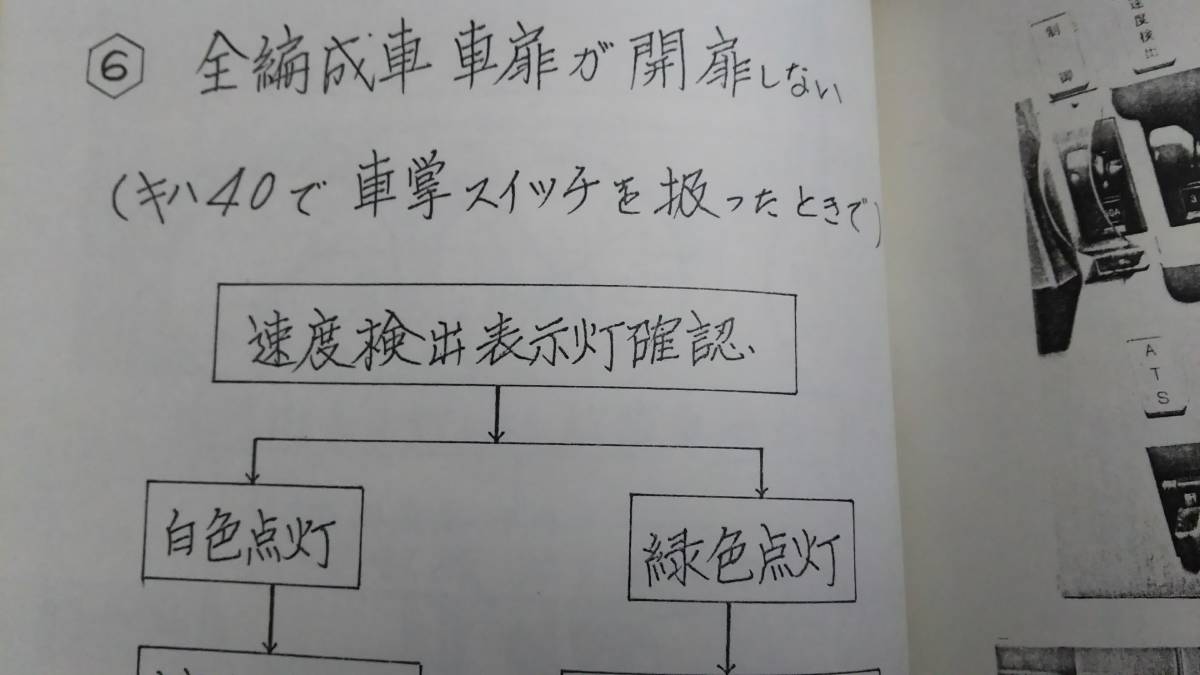 ⑥ 全編成車 車扉が開扉しない
(キハ40で車掌スイッチを扱ったときで)
速度検出表示灯確認
白色点灯
緑色点灯
制御
速度検出
ATS